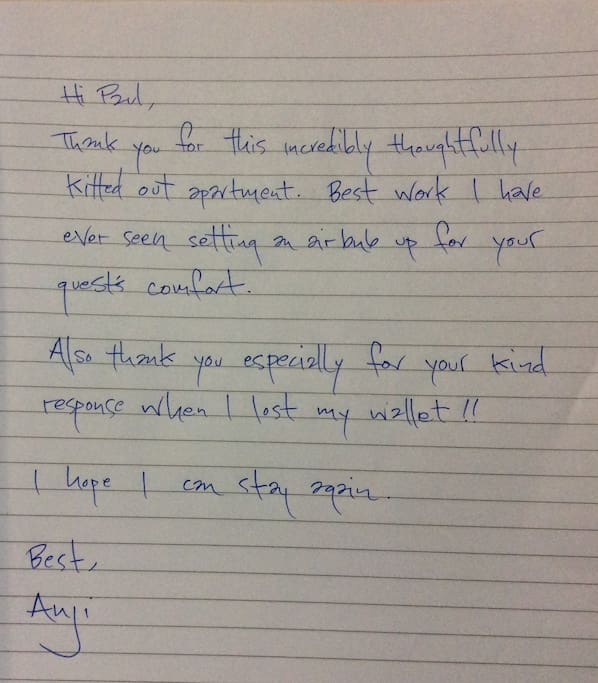 Hi Paul,
Thank you for this incredibly thoughtfully
kitted out apartment. Best work I have
ever seen setting an airbnb up for your
guest's comfort.
Also thank you especially for your kind
response when I lost my wallet!!
I hope I can stay again.
Best,
Anji